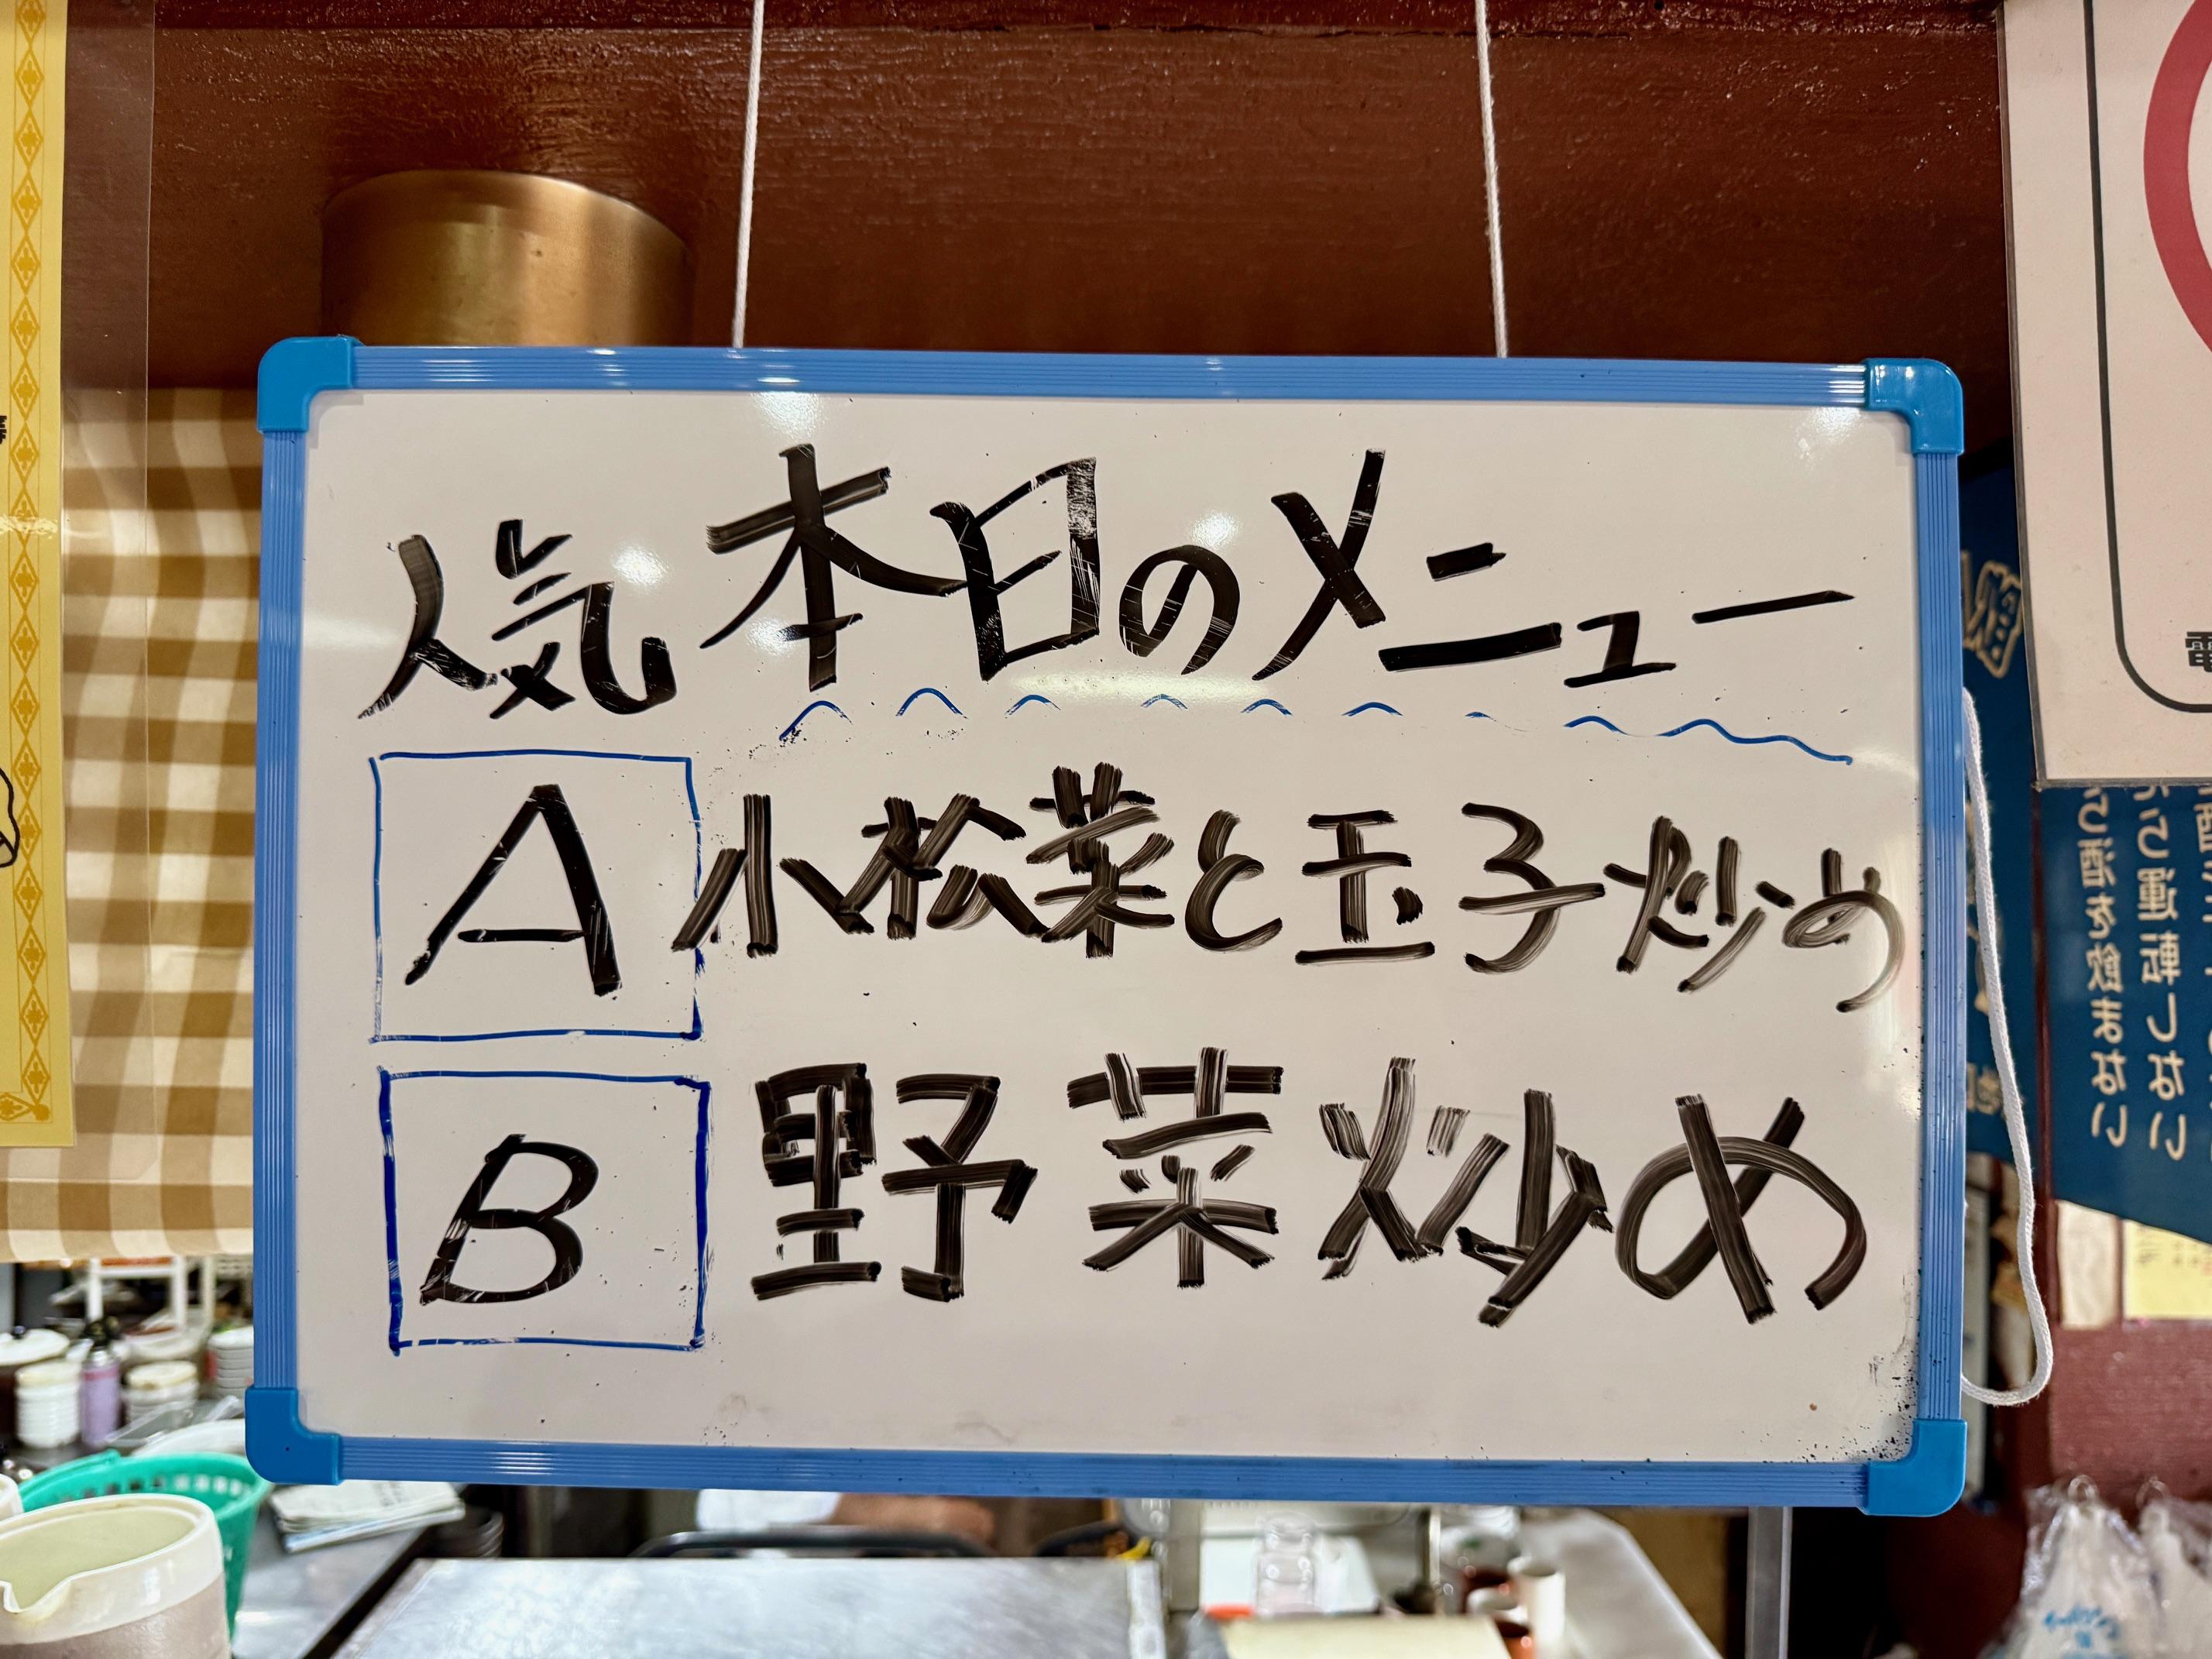 人気 本日のメニュー
A 小松菜と玉子炒め
B 野菜炒め
ら運転しない
ら酒を飲まない
電